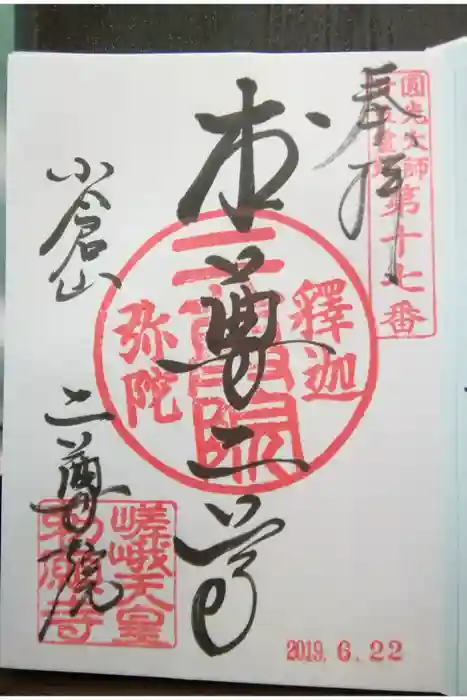 奉拝
圓光大師
廿五霊場
第十七番
本尊二尊
釋迦
二尊院
弥陀
小倉山
二尊院
嵯峨天皇
勅願寺
2019. 6. 22